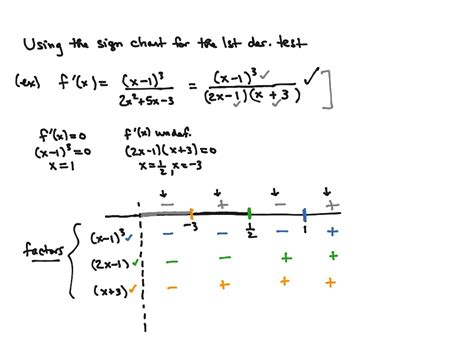 Using the sign chart for the 1st der. test
(ex) f'(x) = (x-1)³ / (2x²+5x-3) = (x-1)³ ✓ / (2x-1)(x+3) ✓ ✓ ✓ ]
f'(x)=0 f'(x) undef.
(x-1)³=0 (2x-1)(x+3)=0
x=1 x=½, x=-3
↓ ↓ ↓ ↓
− + − +
-3 ½ 1
factors { (x-1)³ ✓ − − − +
(2x-1) ✓ − − + +
(x+3) ✓ − + + +